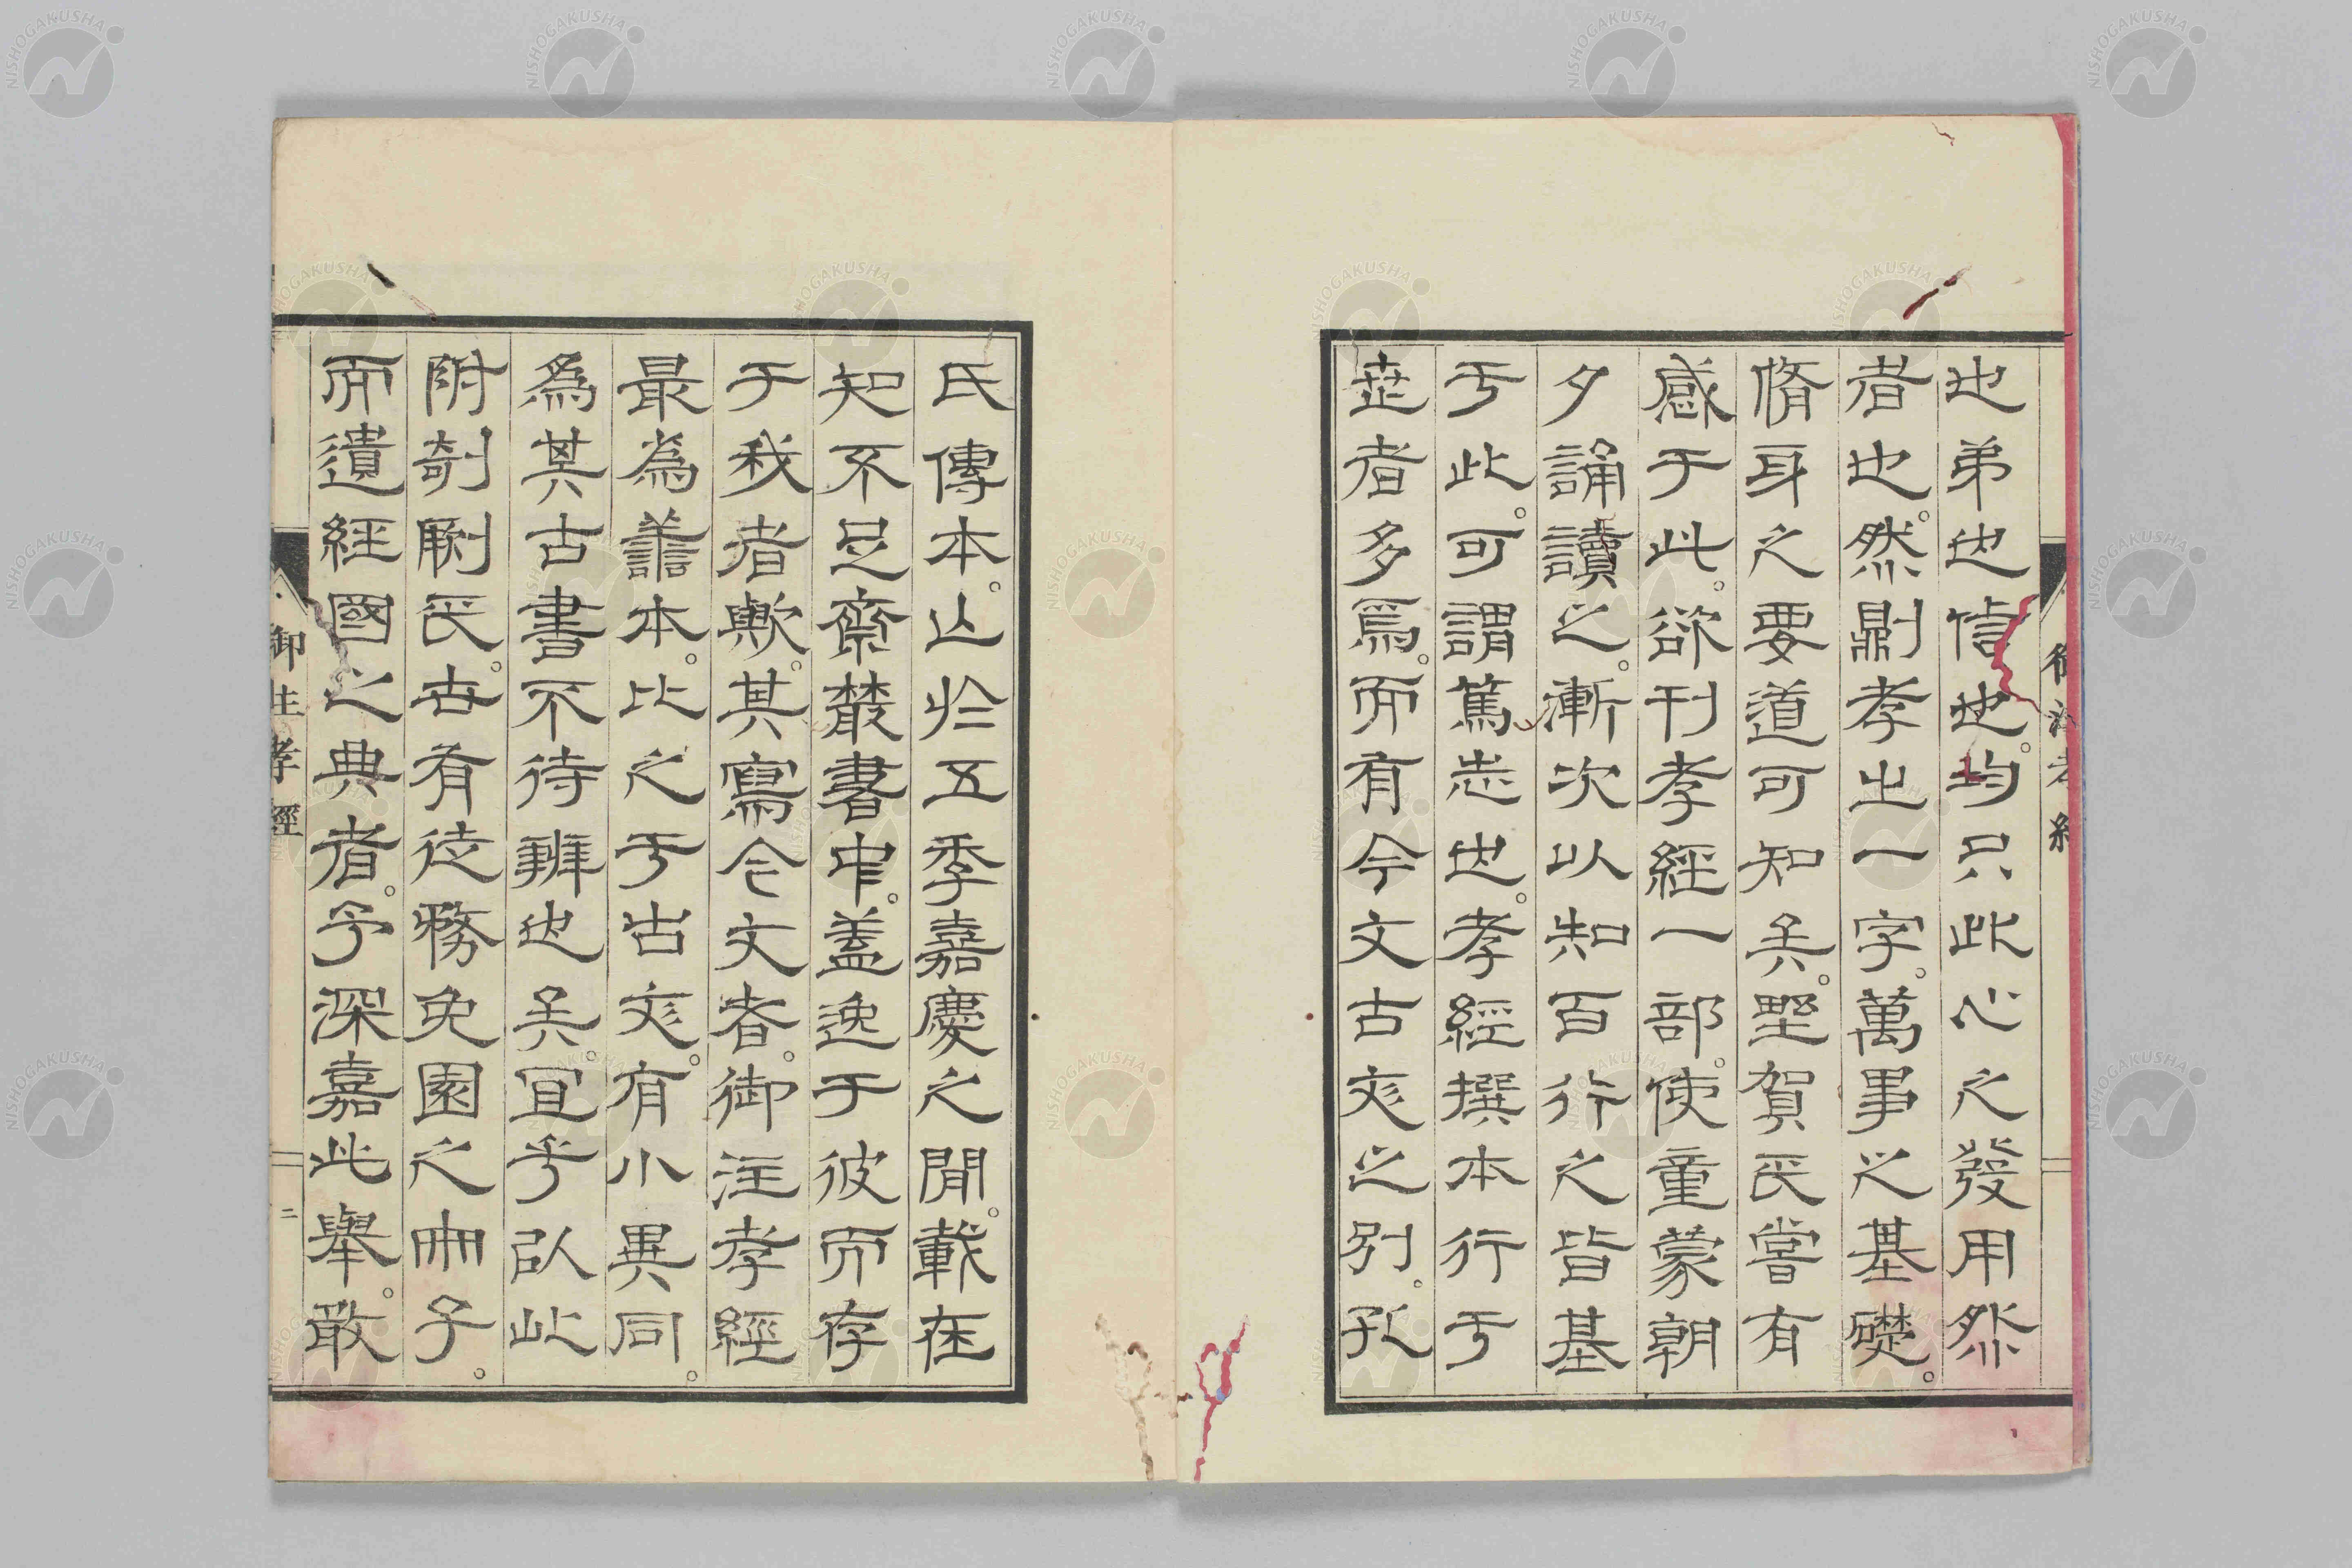 也弟也信也。均只此心之發用然
者也。然則孝出一字。萬事之基礎。
脩身之要道可知矣。野賀氏嘗有
感于此。欲刊孝經一部。使童蒙朝
夕誦讀之。漸次以知百行之皆基
于此。可謂篤志也。孝經撰本行于
世者多焉。而有今文古文之別。孔
氏傳本。止於五季嘉慶之間。載在
知不足齋叢書中。蓋逸于彼而存
于我者歟。其寫今文者。御注孝經
最為善本。比之于古文。有小異同。
為其古書不待辨也矣。宜乎以此
附剞劂氏。世有徒務兔園之冊子。
而遺經國之典者。予深嘉此舉。敢
御注孝經
二
NISHOGAKUSHA